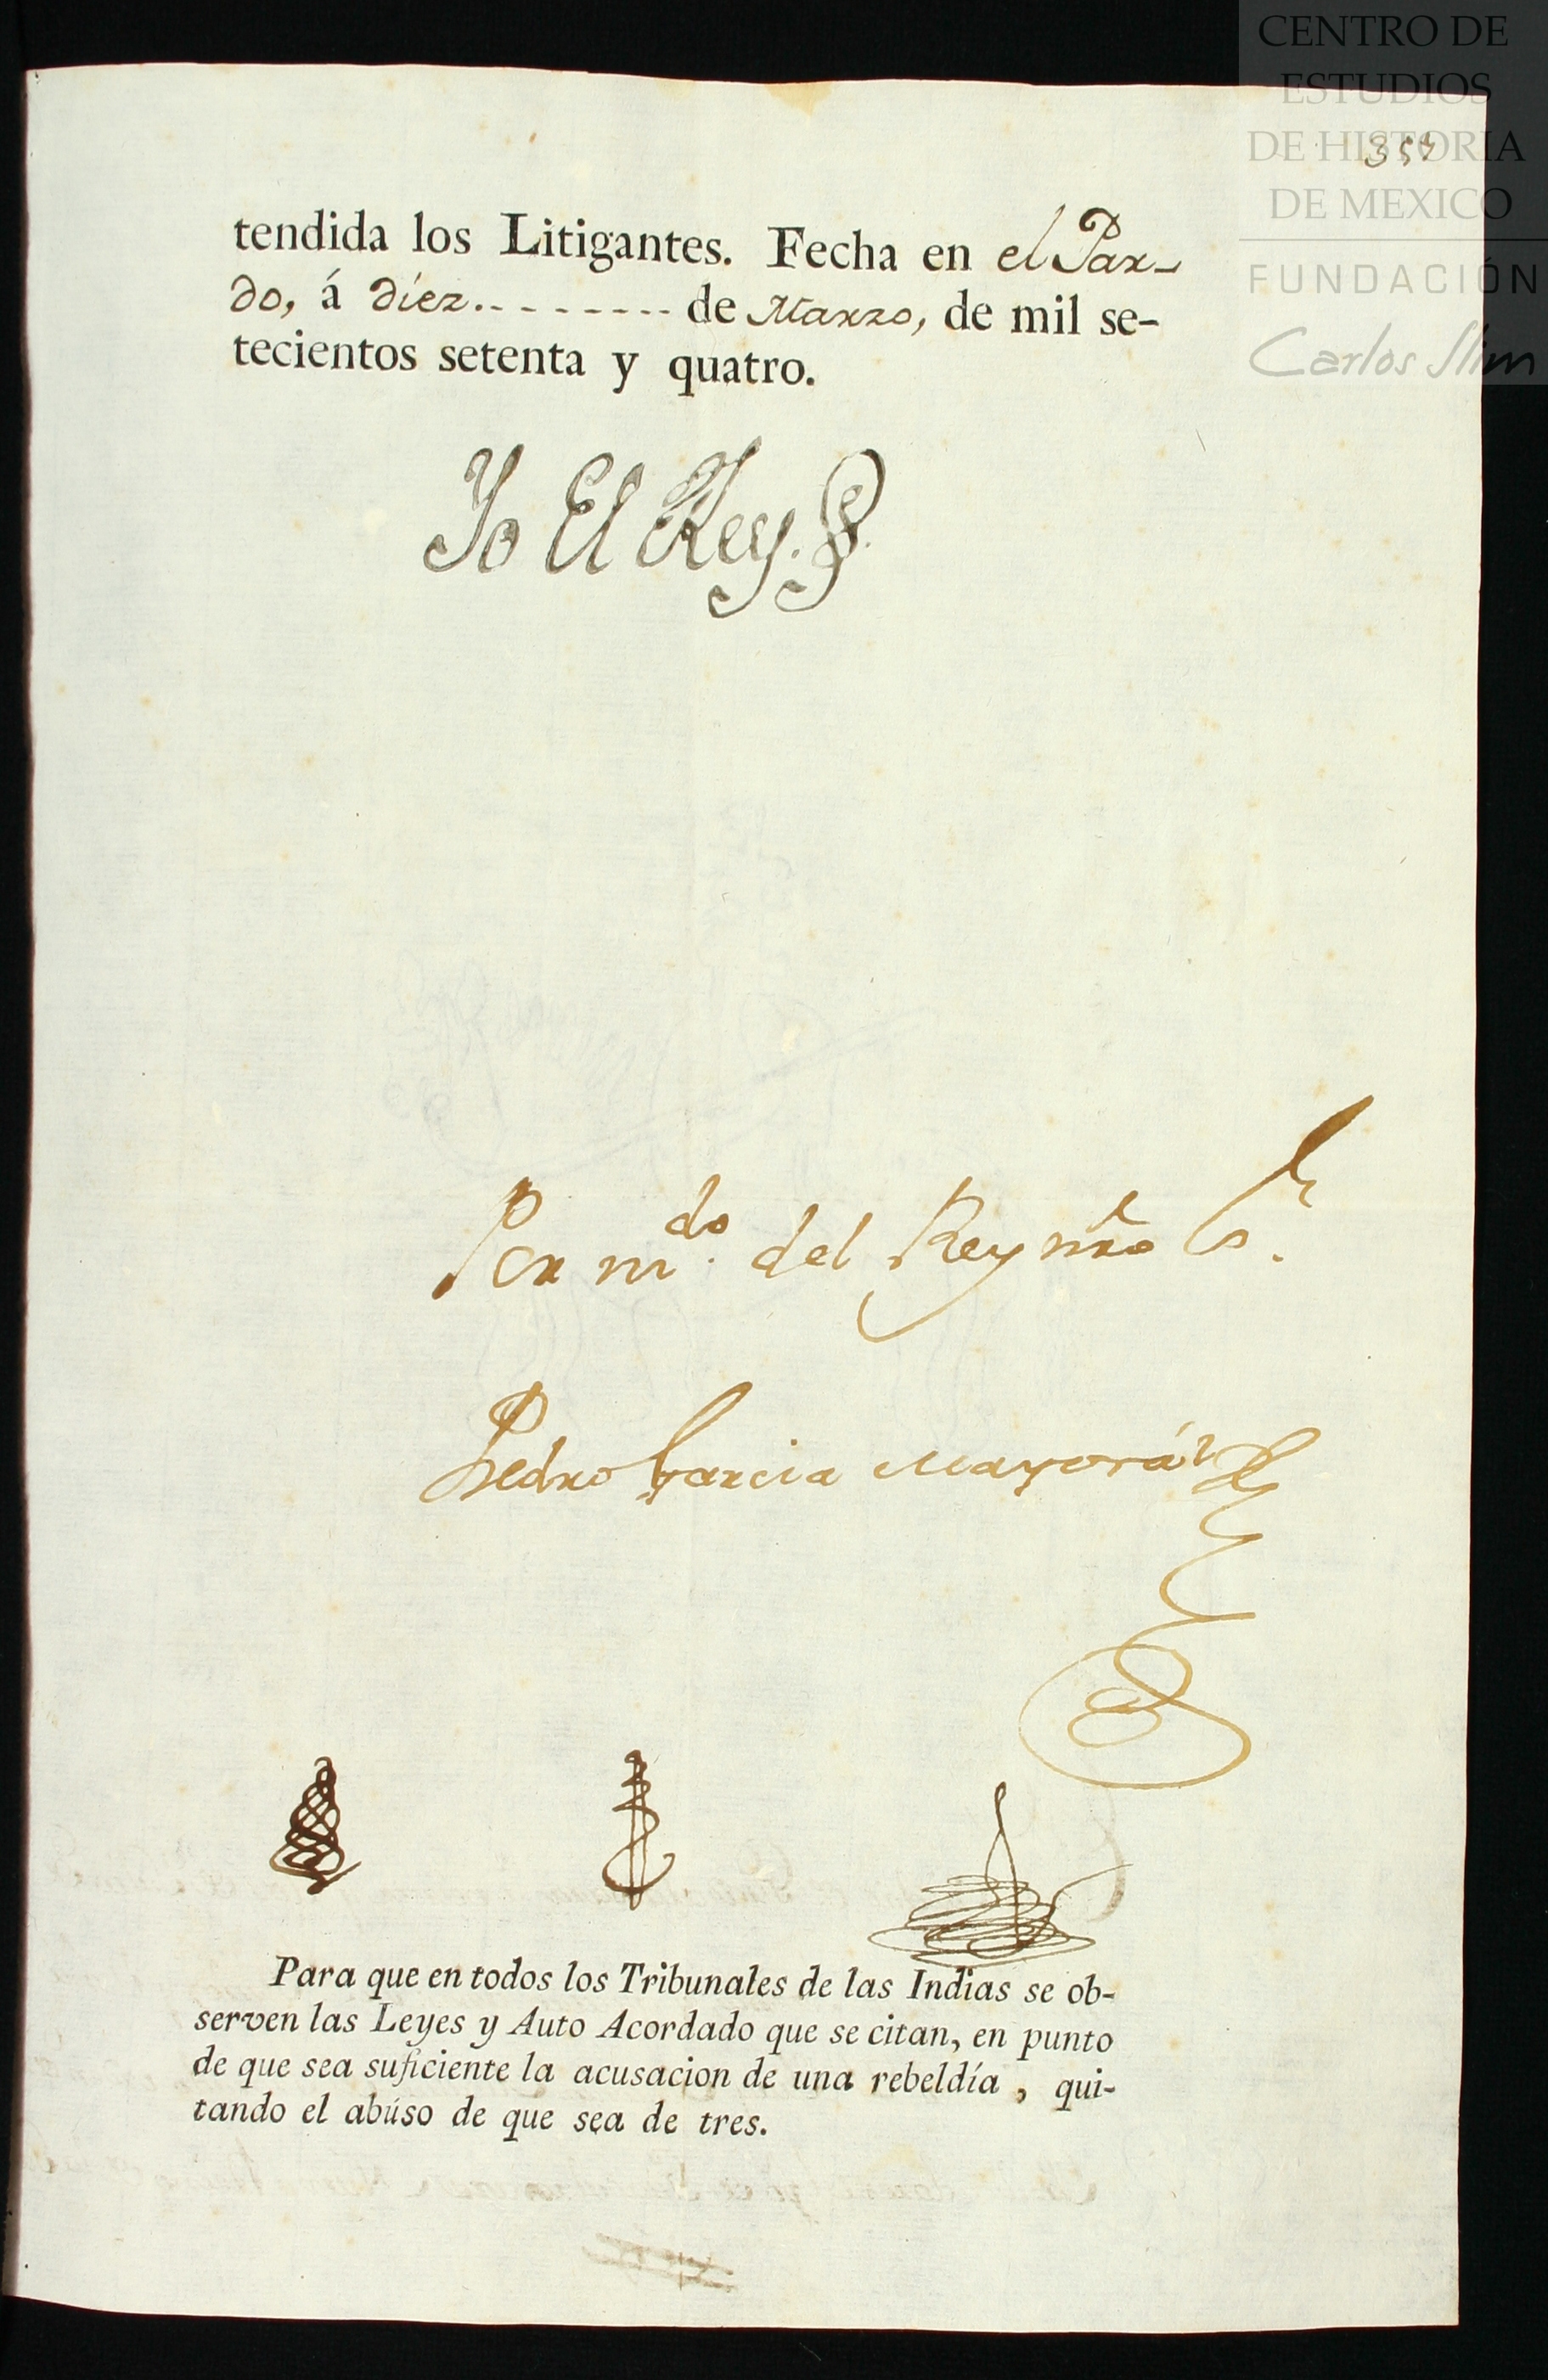 CENTRO DE
ESTUDIOS
DE HISTORIA
DE MEXICO
FUNDACIÓN
Carlos Slim
tendida los Litigantes. Fecha en el Par-
do, á diez.-------- de Marzo, de mil se-
tecientos setenta y quatro.
Yo El Rey.
Por m.do del Rey nro S.r
Pedro Garcia Mayorál
Para que en todos los Tribunales de las Indias se ob-
serven las Leyes y Auto Acordado que se citan, en punto
de que sea suficiente la acusacion de una rebeldía, qui-
tando el abúso de que sea de tres.